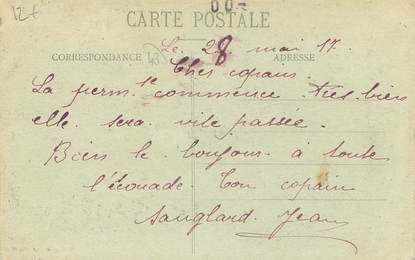 12 €
00-
CARTE POSTALE
CORRESPONDANCE
43
ADRESSE
Le 28 mai 17.
Cher copain
La perm. commence très bien
elle sera vite passée.
Bien le bonjour à toute
l'escouade. Ton copain
Sanglard Jean